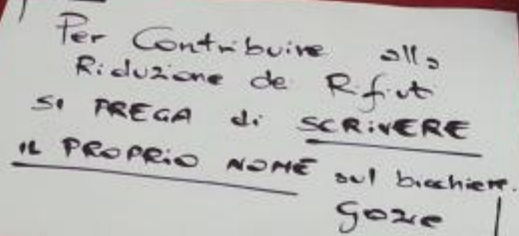 Per Contribuire alla
Riduzione de Rifiuti
SI PREGA di SCRIVERE
IL PROPRIO NOME sul bicchiere.
Gozie